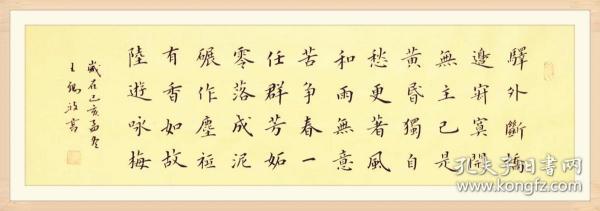 驛外斷橋
邊寂寞開
無主已是
黃昏獨自
愁更著風
和雨無意
苦争春一
任群芳妬
零落成泥
碾作塵祗
有香如故
陸遊咏梅
歲在己亥孟冬
王
書
孔夫子旧书网
www.kongfz.com